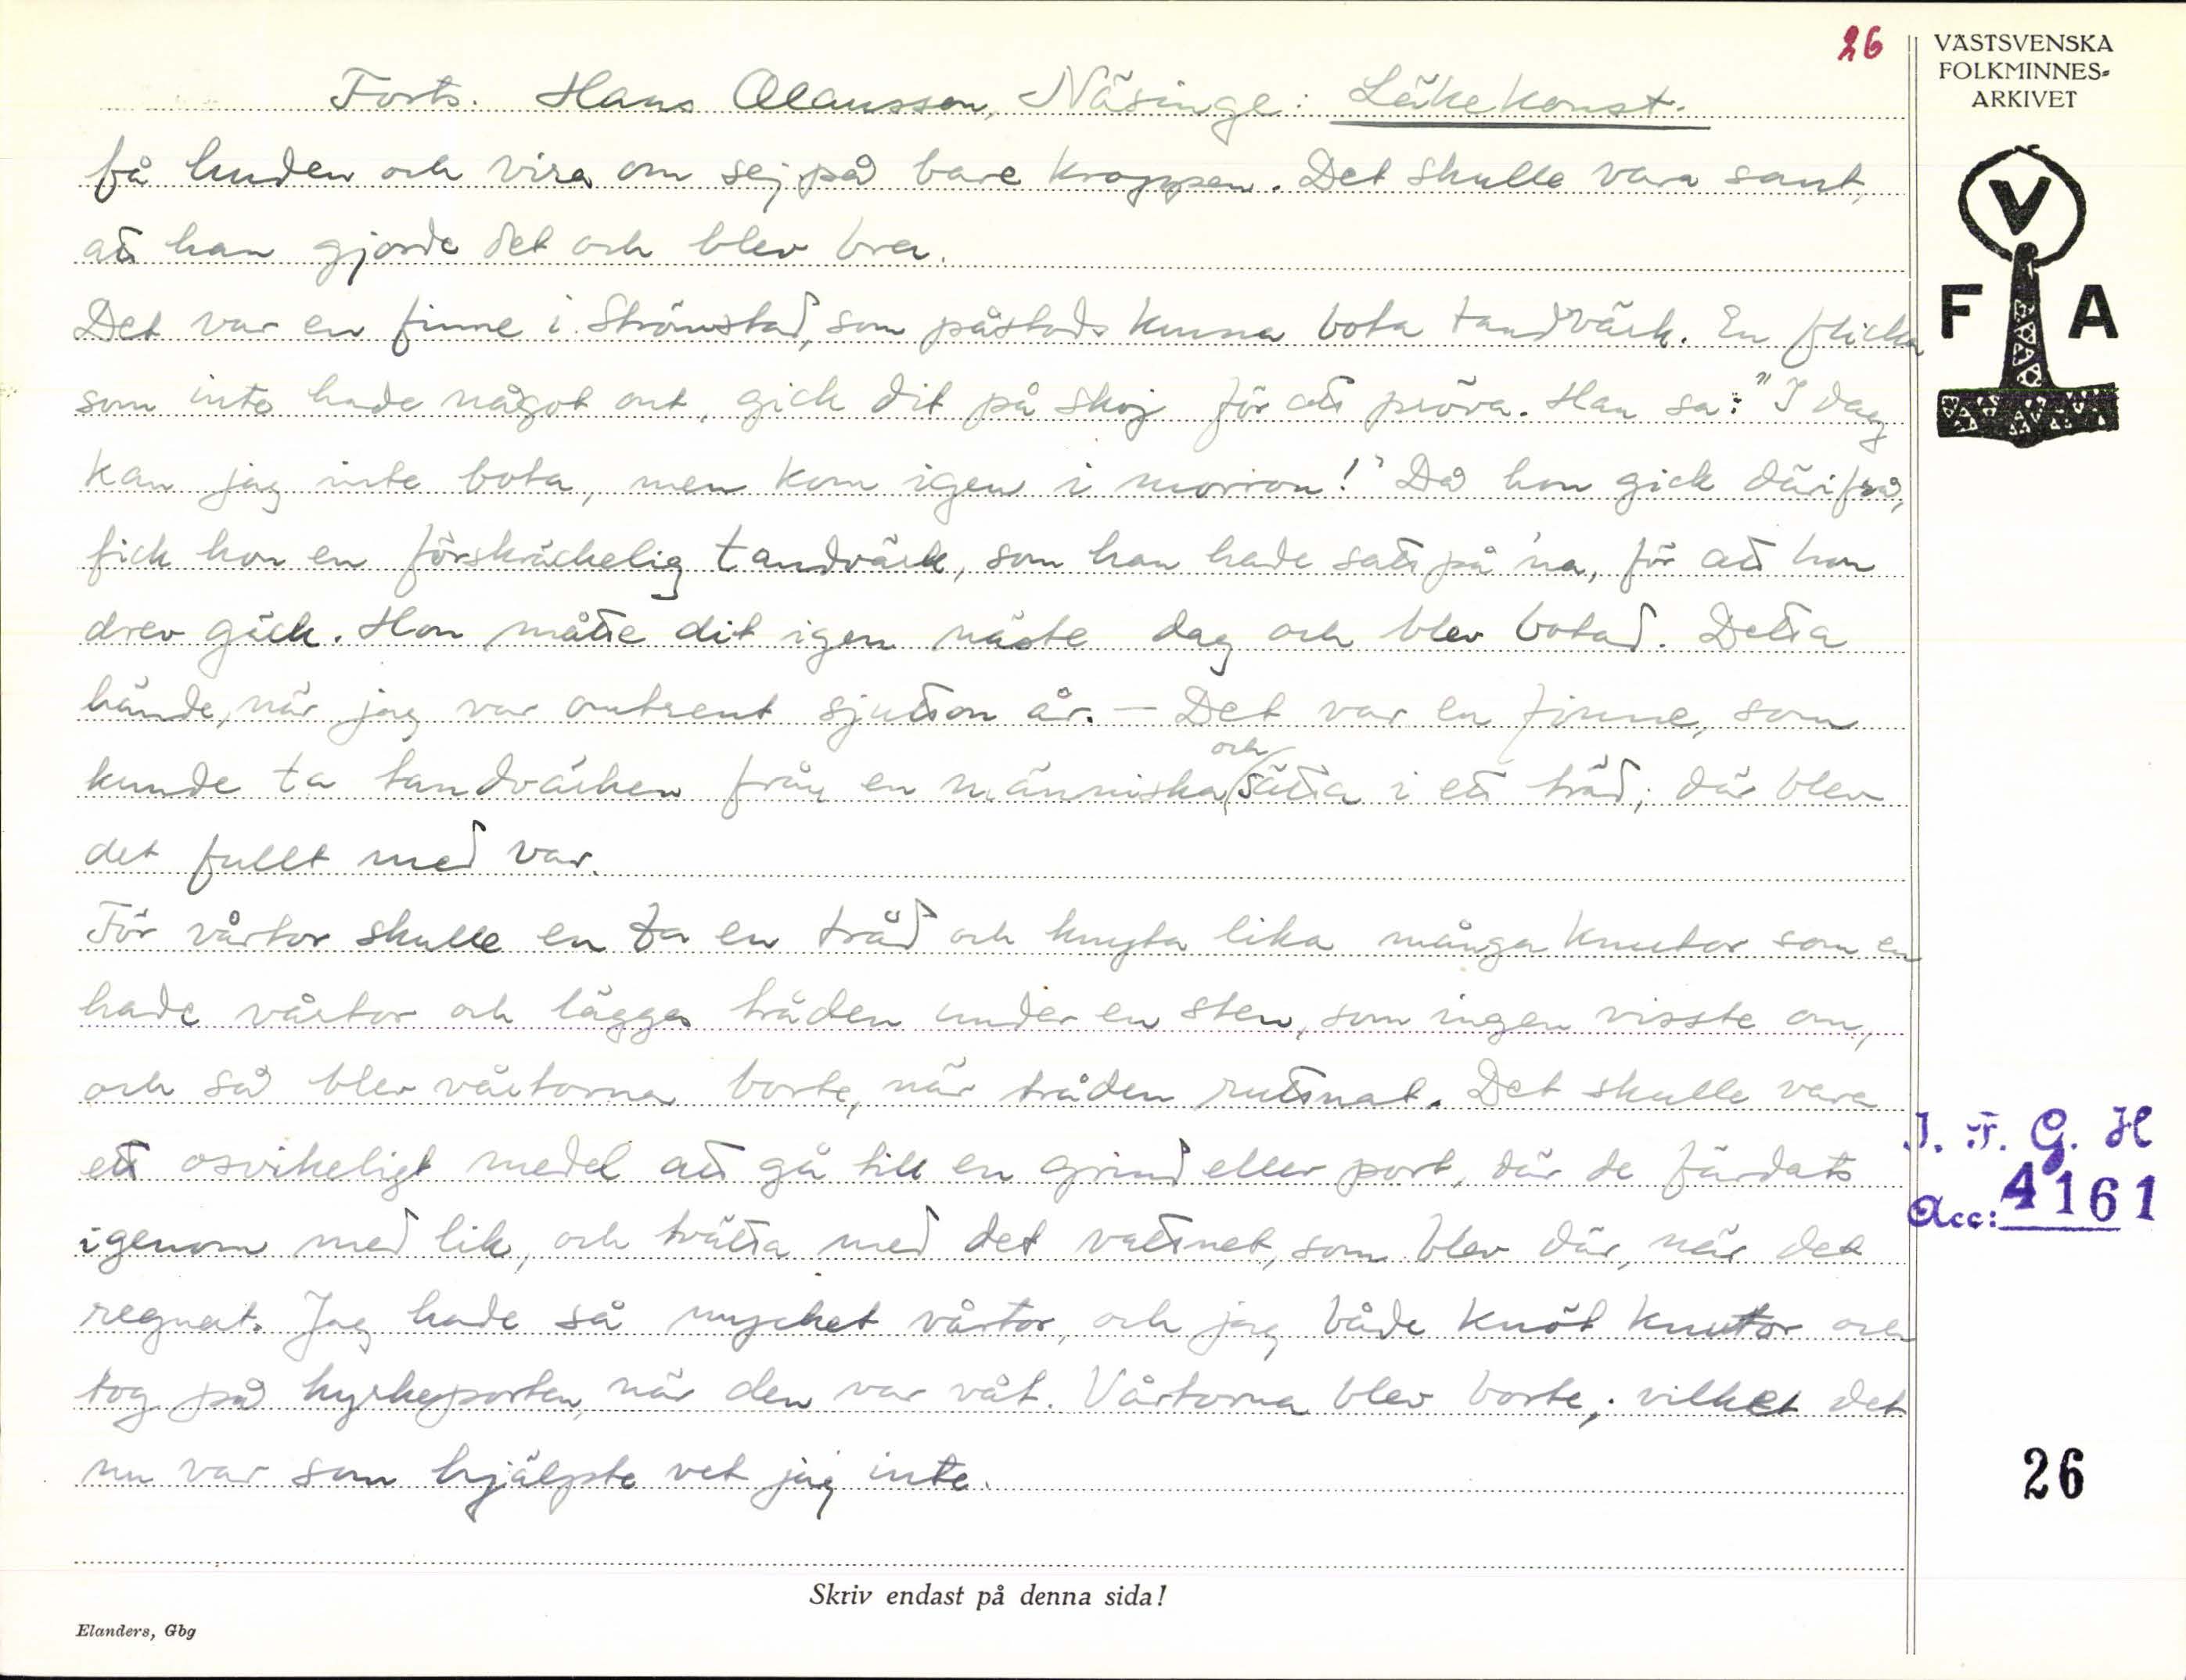 26
VÄSTSVENSKA
FOLKMINNES-
ARKIVET
Forts. Hans Olausson, Näsinge: Läkekonst.
få huden och vira om sej på bare kroppen. Det skulle vara sant,
att han gjorde det och blev bra.
Det var en finne i Strömstad, som påstods kunna bota tandvärk. En flicka
som inte hade något ont, gick dit på skoj för att pröva. Han sa: "I dag
kan jag inte bota, men kom igen i morron!" Då hon gick därifrå,
fick hon en förskräckelig tandvärk, som han hade satt på 'na, för att hon
drev gäck. Hon måtte dit igen näste dag och blev botad. Detta
hände, när jag var omtrent sjutton år. – Det var en finne, som
kunde ta tandvärken från en människa och sätta i ett träd; där blev
det fullt med var.
För vårtor skulle en ta en tråd och knyta lika många knutor som en
hade vårtor och lägga tråden under en sten, som ingen visste om,
och så blev vårtorna borte, när tråden ruttnat. Det skulle vara
ett osvikeligt medel att gå till en grind eller port, där de färdats
igenom med lik, och tvätta med det vattnet, som blev där, när det
regnat. Jag hade så mycket vårtor, och jag både knöt knutor och
tog på kyrkeporten, när den var våt. Vårtorna blev borte; vilket det
nu var som hjälpte vet jag inte.
V
F A
I. F. G. H
Acc: 4161
26
Skriv endast på denna sida!
Elanders, Gbg